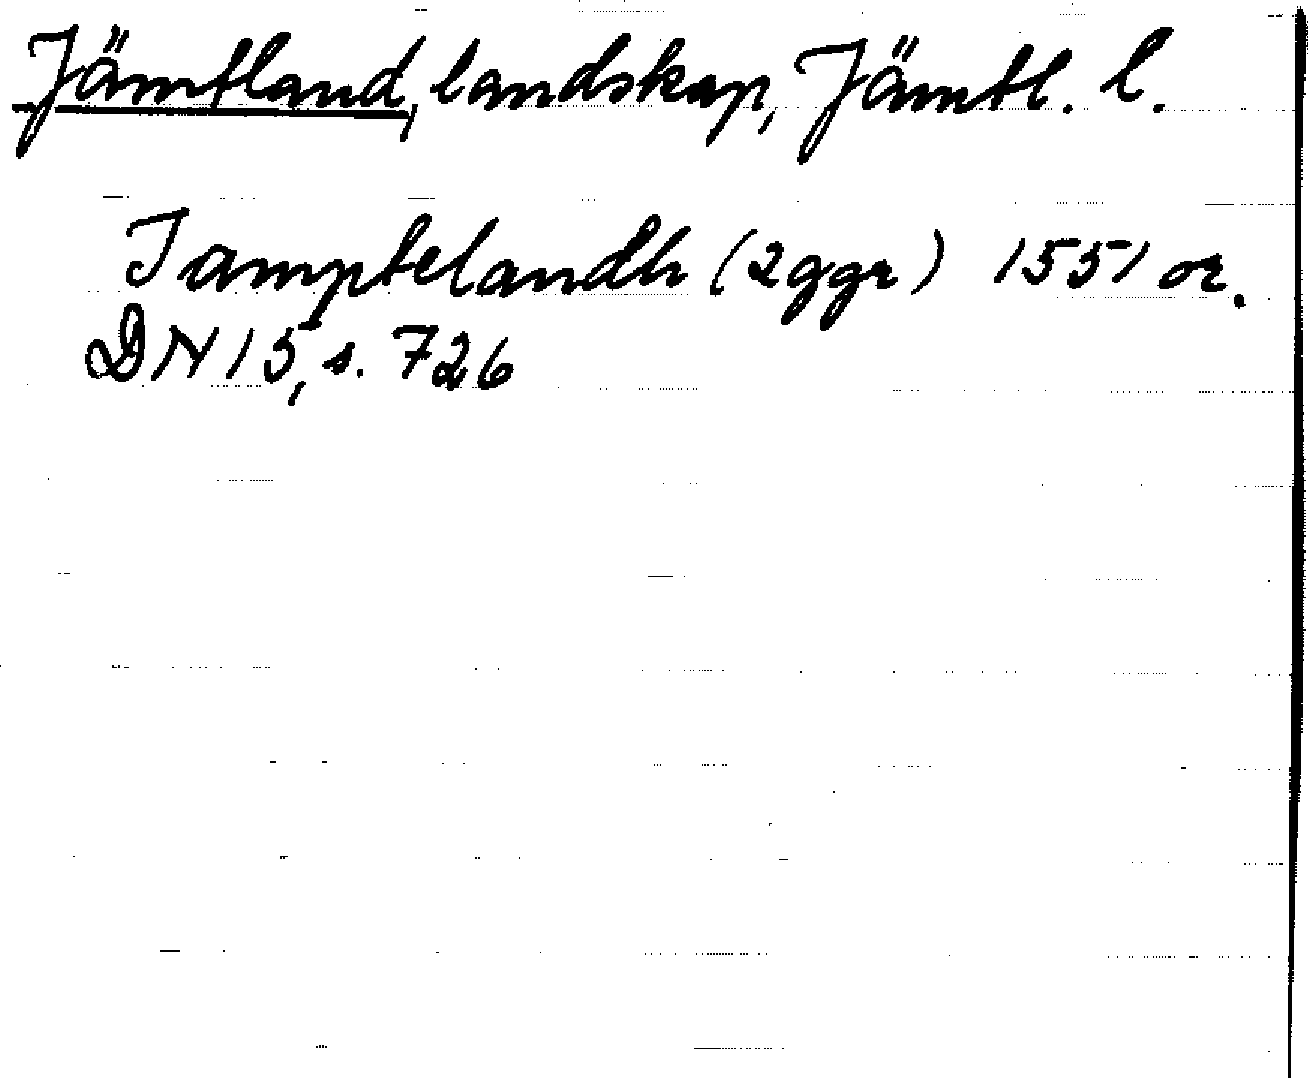 Jämtland, landskap, Jämtl. l.
Iamptelandh (2ggr) 1551 or.
DN 15, s. 726